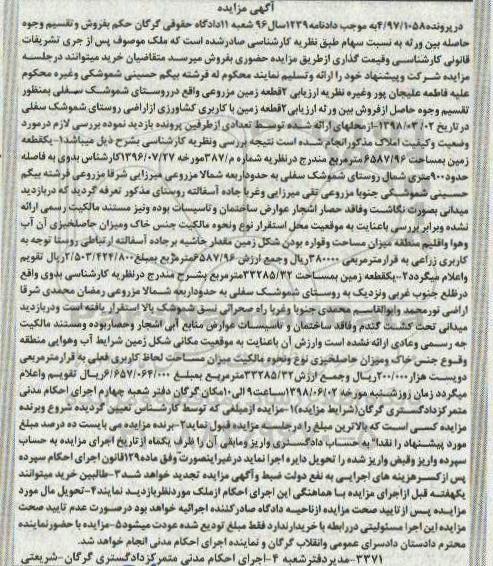 آگهی مزایده
در پرونده ۴/۹۷/۱۰۵۸ به موجب دادنامه ۱۲۳۹ سال ۹۶ شعبه ۱۱ دادگاه حقوقی گرگان حکم بفروش و تقسیم وجوه
حاصله بین ورثه به نسبت سهام طبق نظریه کارشناسی صادر شده است که ملک موصوف پس از جری تشریفات
قانونی کارشناسی و قیمت گذاری از طریق مزایده حضوری بفروش میرسد متقاضیان خرید میتوانند در جلسه
مزایده شرکت و پیشنهاد خود را ارائه و تسلیم نمایند محکوم له فرشته بیگم حسینی شموشکی وغیره محکوم
علیه فاطمه علیجان پور وغیره نظریه ارزیابی ۲ قطعه زمین مزروعی واقع در روستای شموشک سفلی بمنظور
تقسیم وجوه حاصل از فروش بین ورثه ارزیابی ۲ قطعه زمین با کاربری کشاورزی از اراضی روستای شموشک سفلی
در تاریخ ۱۳۹۸/۰۳/۰۲-از محلهای ارائه شده توسط تعدادی از طرفین پرونده بازدید نموده بررسی لازم در مورد
وضعیت وکیفیت املاک مذکور انجام شده است نتیجه بررسی و نظریه کارشناسی بشرح ذیل میباشد۱-یکقطعه
زمین بمساحت ۶۵۸۷/۹۶ مترمربع مندرج در نظریه شماره م/۳۸۷ مورخه ۱۳۹۶/۰۷/۲۷ کارشناس بدوی به فاصله
حدود ۹۰۰ متری شمال روستای شموشک سفلی به حدود اربعه شمالا مزروعی میرزایی شرقا مزروعی فرشته بیگم
حسینی شموشکی جنوبا مزروعی تقی میرزایی وغربا جاده آسفالته روستای مذکور تعرفه گردید که در بازدید
میدانی بصورت نگاشت وفاقد حصار اشجار عوارض ساختمان و تاسیسات بوده ونیز مستند مالکیت رسمی ارائه
نشده وبرابر بررسی با عنایت به موقعیت محل استقرار نوع ونحوه مالکیت جنس خاک ومیزان حاصلخیزی آن آب
وهوا واقلیم منطقه میزان مساحت وقواره بودن شکل زمین مقدار حاشیه بر جاده آسفالته ارتباطی روستا توجه به
کاربری زراعی به قرار مترمربعی ۳۸۰۰۰۰ریال وجمع ارزش ۶۵۸۷/۹۶مترمربع بمبلغ ۲/۵۰۳/۴۲۴/۸۰۰ریال تقویم
واعلام میگردد۲-یکقطعه زمین بمساحت ۳۳۲۸۵/۳۲ مترمربع بشرح مندرج در نظریه کارشناسی بدوی واقع
در ضلع جنوب غربی ونزدیک به روستای شموشک سفلی به حدود اربعه شمالا مزروعی رمضان محمدی شرقا
اراضی نورمحمد وابوالقاسم محمدی جنوبا وغربا راه صحرائی نسق شموشک بالا استقرار یافته است ودر بازدید
میدانی تحت کشت گندم وفاقد ساختمان و تاسیسات عوارض منابع آبی اشجار وحصار بوده ومستند مالکیت
چه رسمی وعادی ارائه نشده است وارزش آن باعنایت به موقعیت مکانی شکل زمین شرایط آب وهوایی منطقه
وقوع جنس خاک ومیزان حاصلخیزی نوع ونحوه مالکیت میزان مساحت لحاظ کاربری فعلی به قرار مترمربعی
دویست هزار۲۰۰/۰۰۰ریال وجمع ارزش ۳۳۲۸۵/۳۲ مترمربع بمبلغ ۶/۶۵۷/۰۶۴/۰۰۰ریال تقویم واعلام
میگردد زمان روز شنبه مورخه ۱۳۹۸/۰۶/۰۲ ساعت ۹ الی ۱۰ مکان گرگان دفتر شعبه چهارم اجرای احکام مدنی
متمرکز دادگستری گرگان(شرایط مزایده)۱-مزایده از مبلغی که توسط کارشناس تعیین گردیده شروع وبرنده
مزایده کسی است که بالاترین مبلغ را در جلسه مزایده قبول نماید۲-برنده مزایده می بایست ده درصد مبلغ
مورد پیشنهاد را نقدا" به حساب دادگستری واریز ومابقی آن را ظرف یکماه از تاریخ اجرای مزایده به حساب
سپرده واریز وقبض واریز شده را تحویل دایره اجرا نماید در غیر اینصورت وفق ماده ۱۲۹ قانون اجرای احکام سپرده
پس از کسر هزینه های اجرایی به نفع دولت ضبط و آگهی مزایده تجدید خواهد شد ۳-طالبین خرید میتوانند
یکهفته قبل از اجرای مزایده با هماهنگی این اجرای احکام از ملک موردنظر بازدید نمایند۴-تحویل مال مورد
مزایده پس از تایید صحت مزایده از ناحیه دادگاه صادر کننده اجرائیه خواهد بود در صورت عدم تایید صحت
مزایده این اجرا مسئولیتی در رابطه با خریدار ندارد فقط مبلغ تودیع شده عودت میشود۵-مزایده با حضور نماینده
محترم دادستان دادسرای عمومی وانقلاب گرگان و نماینده اجرای احکام مدنی انجام خواهد شد.
۳۳۷۱-مدیر دفتر شعبه ۴-اجرای احکام مدنی متمرکز دادگستری گرگان-شریعتی